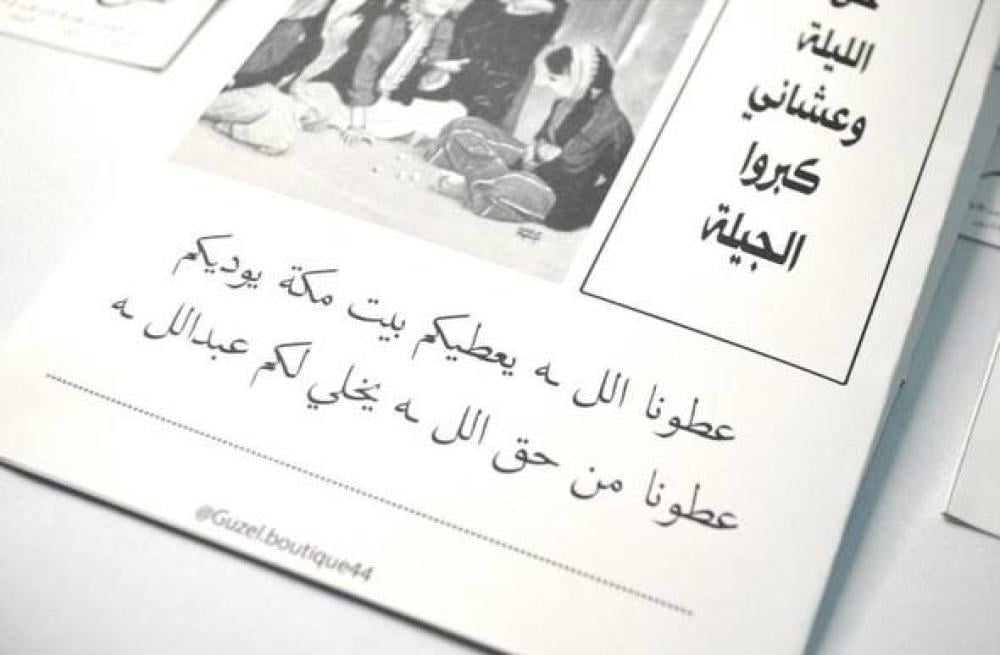 الليلة
وعشاني
كبروا
الجيلة
عطونا الل ـه يعطيكم بيت مكة يوديكم
عطونا من حق الل ـه يخلي لكم عبدالل ـه
@Guzel.boutique44